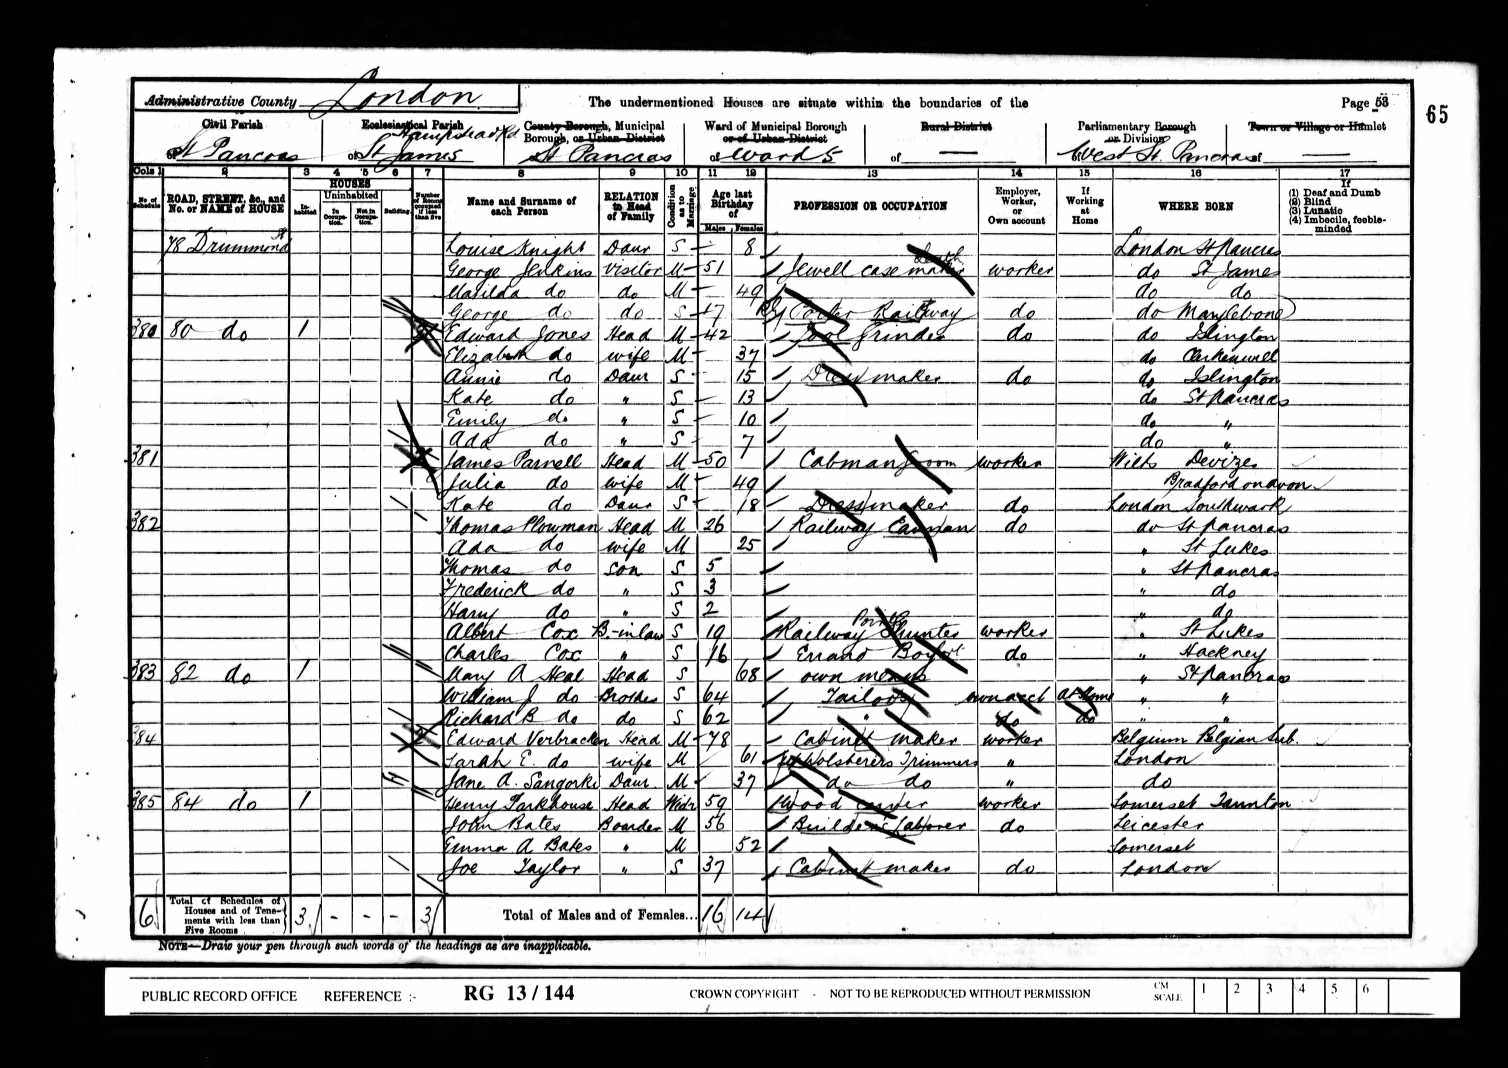 Administrative County London The undermentioned Houses are situate within the boundaries of the Page 53
65
Civil Parish Ecclesiastical Parish County Borough, Municipal Borough, or Urban District Ward of Municipal Borough or of Urban District Rural District Parliamentary Borough or Division Town or Village or Hamlet
of St Pancras of St James Hampstead Rd of St Pancras of Ward 5 of — of West St. Pancras of —
Cols 1 2 3 4 5 6 7 8 9 10 11 12 13 14 15 16 17
No. of Schedule ROAD, STREET, &c., and No. or NAME of HOUSE HOUSES Inhabited Uninhabited In Occupation. Not in Occupation. Building Number of Rooms occupied if less than five Name and Surname of each Person RELATION to Head of Family Condition as to Marriage Age last Birthday of Males Females PROFESSION OR OCCUPATION Employer, Worker, or Own account If Working at Home WHERE BORN If (1) Deaf and Dumb (2) Blind (3) Lunatic (4) Imbecile, feeble-minded
78 Drummond St Louise Knight Daur S 8 London St Pancras
George Jenkins Visitor M 51 Jewell case maker worker do St James
Matilda do do M 49 do do
George do do S 17 Porter Railway do do Marylebone
380 80 do 1 Edward Jones Head M 42 Tool Grinder do do Islington
Elizabeth do wife M 37 do Clerkenwell
Annie do Daur S 15 Dress maker do do Islington
Kate do " S 13 do St Pancras
Emily do " S 10 do "
Ada do " S 7 do "
381 James Parnell Head M 50 Cabman Groom worker Wilts Devizes
Julia do wife M 49 Bradford on avon
Kate do Daur S 18 Dress maker do London Southwark
382 Thomas Plowman Head M 26 Railway Carman do do St Pancras
Ada do wife M 25 " St Lukes
Thomas do son S 5 " St Pancras
Frederick do " S 3 " do
Harry do " S 2 " do
Albert Cox B.-in law S 19 Railway Shunter worker " St Lukes
Charles Cox " S 16 Errand Boy do " Hackney
383 82 do 1 Mary A Heal Head S 68 own means " St Pancras
William J. do Brother S 64 Tailor own acct At Home " "
Richard B do do S 62 " do do " "
384 Edward Verbracken Head M 78 Cabinet maker worker Belgium Belgian Sub.
Sarah E. do wife M 61 Upholsterers Trimmers " London
Jane A. Sangorki Daur M 37 do do " do
385 84 do 1 Henry Parkhouse Head Widr 59 Wood carver worker Somerset Taunton
John Bates Boarder M 56 Builders Labourer do Leicester
Emma A Bates " M 52 Somerset
Joe Taylor " S 37 Cabinet maker do London
6 Total of Schedules of Houses and of Tenements with less than Five Rooms 3 - - - 3 Total of Males and of Females... 16 14
NOTE—Draw your pen through such words of the headings as are inapplicable.
PUBLIC RECORD OFFICE REFERENCE :- RG 13 / 144 CROWN COPYRIGHT - NOT TO BE REPRODUCED WITHOUT PERMISSION CM SCALE 1 2 3 4 5 6